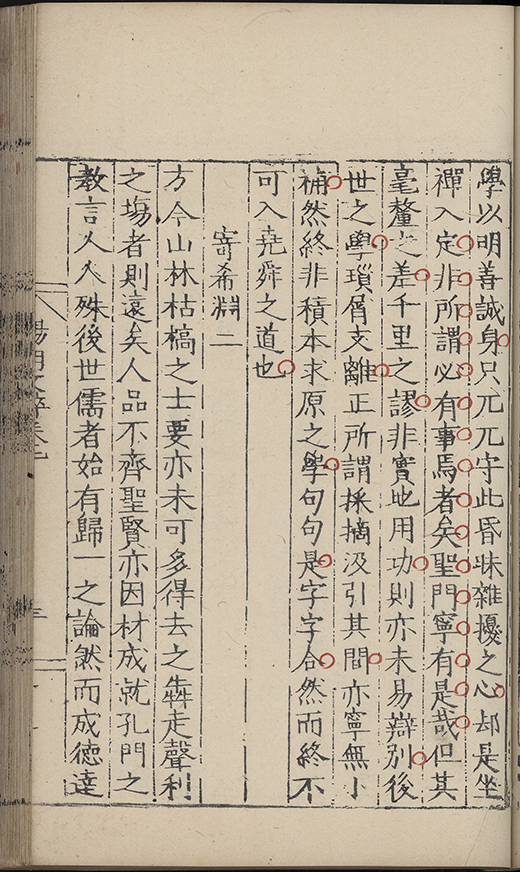 學以明善誠身只兀兀守此昏昧雜擾之心却是坐
禪入定非所謂必有事焉者矣聖門寧有是哉但其
毫釐之差千里之謬非實地用功則亦未易辯別後
世之學瑣屑支離正所謂採摘汲引其間亦寧無小
補然終非積本求原之學句句是字字合然而終不
可入堯舜之道也
寄希淵二
方今山林枯槁之士要亦未可多得去之犇走聲利
之塲者則遠矣人品不齊聖賢亦因材成就孔門之
教言人人殊後世儒者始有歸一之論然而成德達
陽明文粹卷